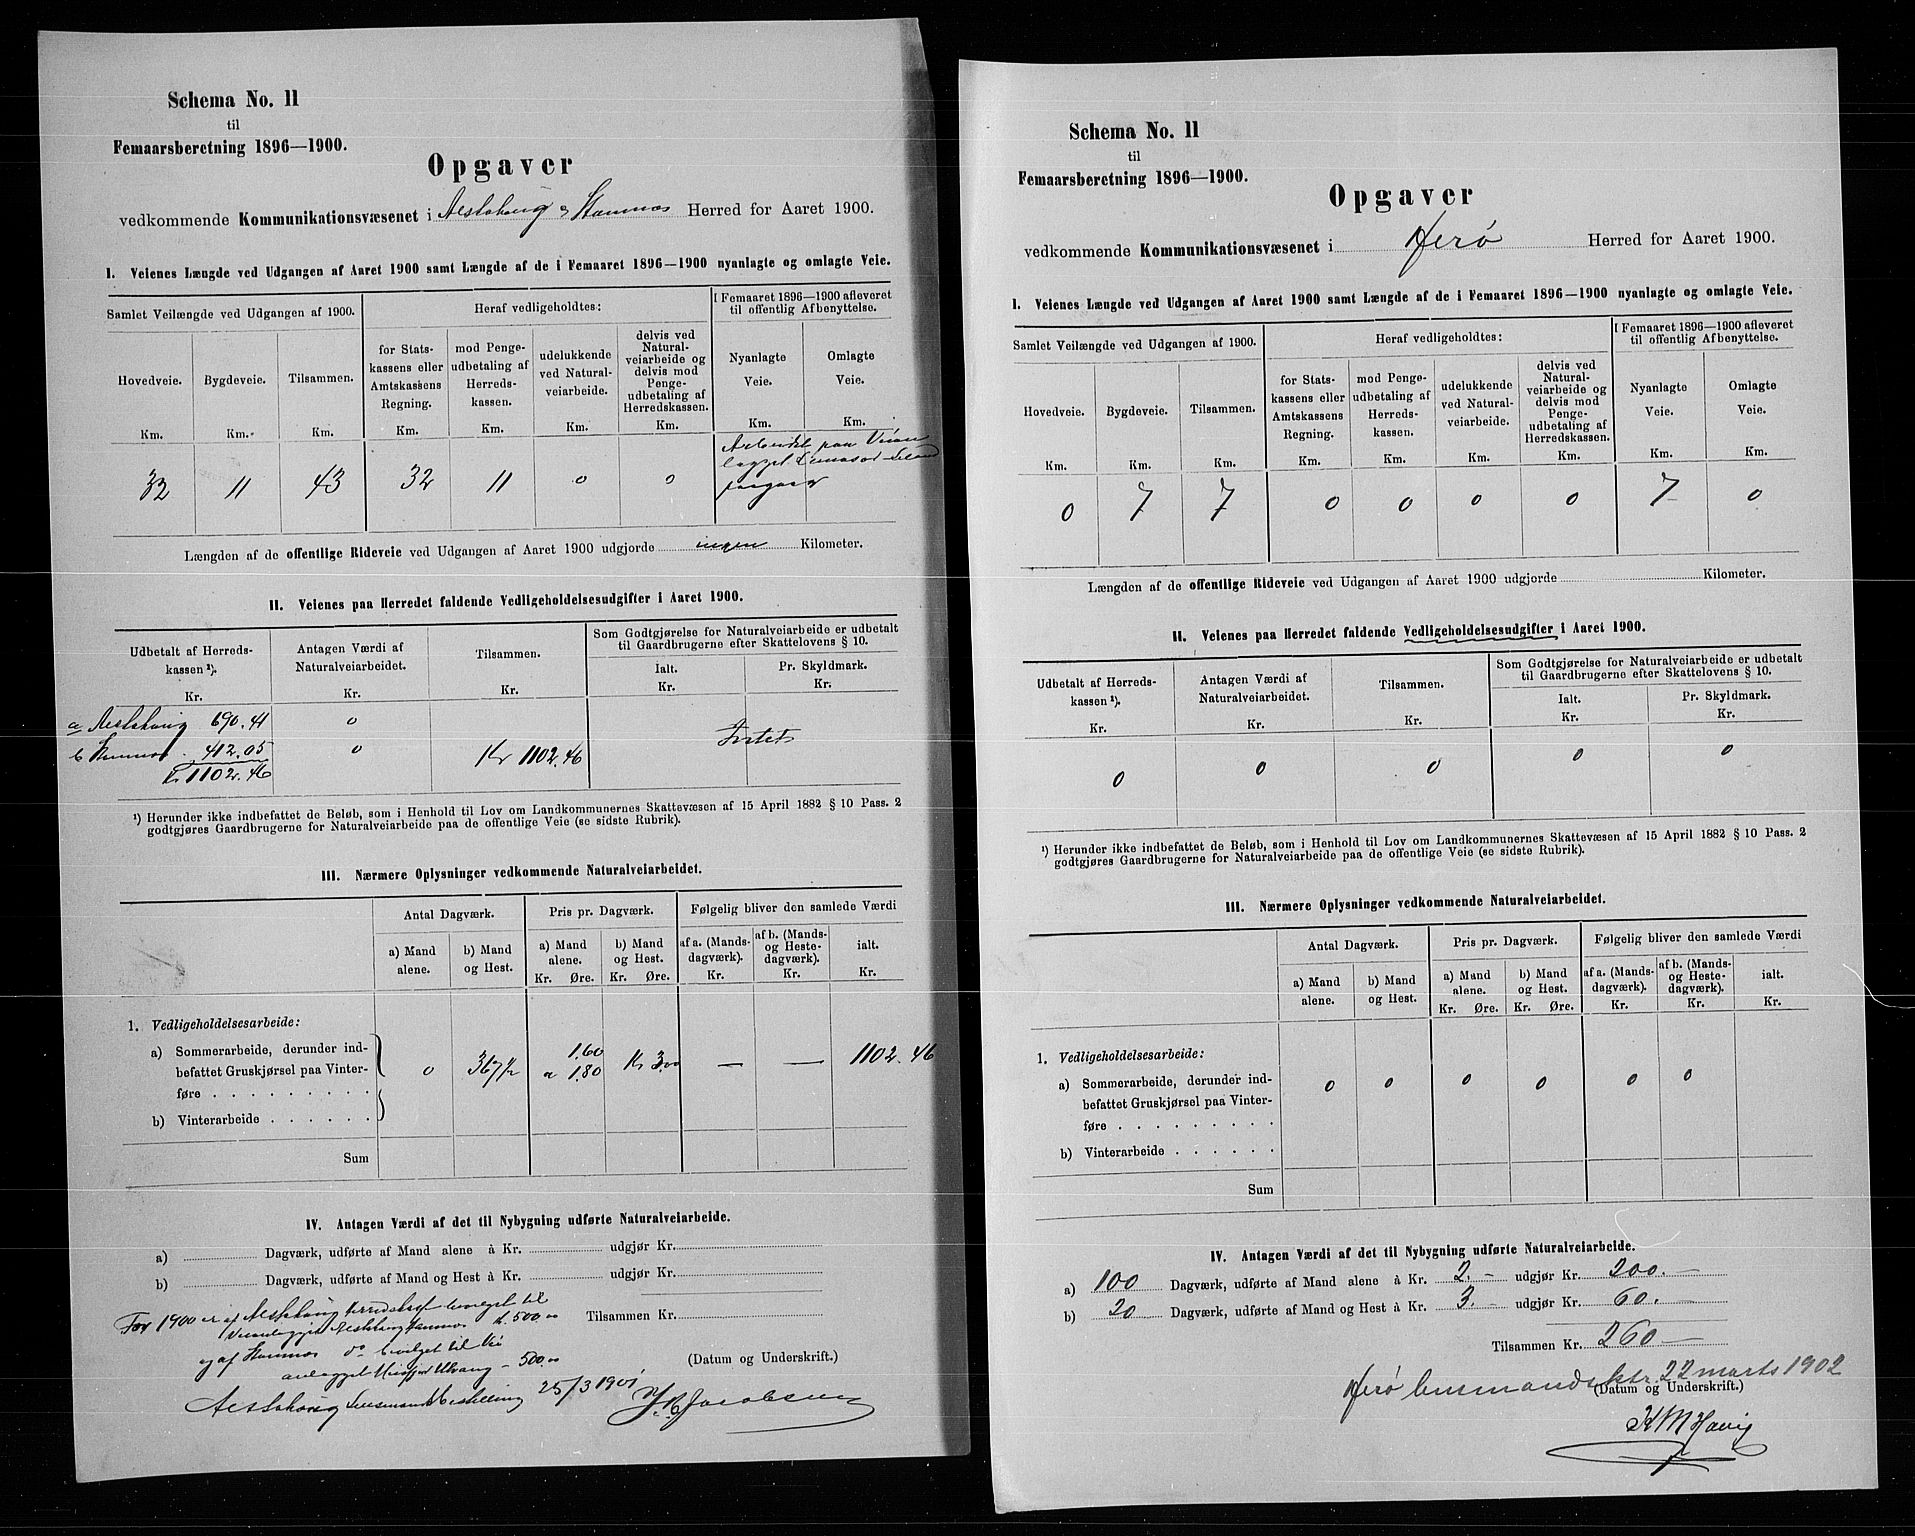 Schema No. 11
til
Femaarsberetning 1896—1900.
Opgaver
vedkommende Kommunikationsvæsenet i Alstahoug & Stamnæs Herred for Aaret 1900.
I. Veienes Længde ved Udgangen af Aaret 1900 samt Længde af de i Femaaret 1896—1900 nyanlagte og omlagte Veie.
Samlet Veilængde ved Udgangen af 1900.
Heraf vedligeholdtes:
I Femaaret 1896—1900 afleveret
til offentlig Afbenyttelse.
Hovedveie.
Km.
Bygdeveie.
Km.
Tilsammen.
Km.
for Stats-
kassens eller
Amtskassens
Regning.
Km.
mod Penge-
udbetaling af
Herreds-
kassen.
Km.
udelukkende
ved Natural-
veiarbeide.
Km.
delvis ved
Natural-
veiarbeide og
delvis mod
Penge-
udbetaling af
Herredskassen.
Km.
Nyanlagte
Veie.
Km.
Omlagte
Veie.
Km.
32 11 43 32 11 0 0
Arbeidet paa Veian
lægget
paagaar
Længden af de offentlige Rideveie ved Udgangen af Aaret 1900 udgjorde ingen Kilometer.
II. Veienes paa Herredet faldende Vedligeholdelsesudgifter i Aaret 1900.
Udbetalt af Herreds-
kassen ¹).
Kr.
Antagen Værdi af
Naturalveiarbeidet.
Kr.
Tilsammen.
Kr.
Som Godtgjørelse for Naturalveiarbeide er udbetalt
til Gaardbrugerne efter Skattelovens § 10.
Ialt.
Kr.
Pr. Skyldmark.
Kr.
a Alstahoug 690.41 0
b Stamnæs 412.05 0 Kr 1102.46 Intet
Kr 1102.46
¹) Herunder ikke indbefattet de Beløb, som i Henhold til Lov om Landkommunernes Skattevæsen af 15 April 1882 § 10 Pass. 2
godtgjøres Gaardbrugerne for Naturalveiarbeide paa de offentlige Veie (se sidste Rubrik).
III. Nærmere Oplysninger vedkommende Naturalveiarbeidet.
Antal Dagværk.
Pris pr. Dagværk.
Følgelig bliver den samlede Værdi
a) Mand
alene.
b) Mand
og Hest.
a) Mand
alene.
Kr. Øre.
b) Mand
og Hest.
Kr. Øre.
af a. (Mands-
dagværk).
Kr.
af b. (Mands-
og Heste-
dagværk).
Kr.
ialt.
Kr.
1. Vedligeholdelsesarbeide:
a) Sommerarbeide, derunder ind-
befattet Gruskjørsel paa Vinter-
føre . . . . . . . . .
b) Vinterarbeide . . . . . .
0 367½ 1.60 a 1.80 Kr 3.00 — — 1102.46
Sum
IV. Antagen Værdi af det til Nybygning udførte Naturalveiarbeide.
a) Dagværk, udførte af Mand alene à Kr. udgjør Kr.
b) Dagværk, udførte af Mand og Hest à Kr. udgjør Kr.
Tilsammen Kr.
For 1900 er af Alstahoug Herredskasse bevilget til
Veianlægget Alstahoug Stamnæs K. 500,00
og af Stamnæs do bevilget til Vei
anlægget Ulvang - 500.00
(Datum og Underskrift.)
Alstahoug Lensmandsbestilling 25/3 1901
Jacobsen
Schema No. 11
til
Femaarsberetning 1896—1900.
Opgaver
vedkommende Kommunikationsvæsenet i Herø Herred for Aaret 1900.
I. Veienes Længde ved Udgangen af Aaret 1900 samt Længde af de i Femaaret 1896—1900 nyanlagte og omlagte Veie.
Samlet Veilængde ved Udgangen af 1900.
Heraf vedligeholdtes:
I Femaaret 1896—1900 afleveret
til offentlig Afbenyttelse.
Hovedveie.
Km.
Bygdeveie.
Km.
Tilsammen.
Km.
for Stats-
kassens eller
Amtskassens
Regning.
Km.
mod Penge-
udbetaling af
Herreds-
kassen.
Km.
udelukkende
ved Natural-
veiarbeide.
Km.
delvis ved
Natural-
veiarbeide og
delvis mod
Penge-
udbetaling af
Herredskassen.
Km.
Nyanlagte
Veie.
Km.
Omlagte
Veie.
Km.
0 7 7 0 0 0 0 7 0
Længden af de offentlige Rideveie ved Udgangen af Aaret 1900 udgjorde Kilometer.
II. Veienes paa Herredet faldende Vedligeholdelsesudgifter i Aaret 1900.
Udbetalt af Herreds-
kassen ¹).
Kr.
Antagen Værdi af
Naturalveiarbeidet.
Kr.
Tilsammen.
Kr.
Som Godtgjørelse for Naturalveiarbeide er udbetalt
til Gaardbrugerne efter Skattelovens § 10.
Ialt.
Kr.
Pr. Skyldmark.
Kr.
0 0 0 0 0
¹) Herunder ikke indbefattet de Beløb, som i Henhold til Lov om Landkommunernes Skattevæsen af 15 April 1882 § 10 Pass. 2
godtgjøres Gaardbrugerne for Naturalveiarbeide paa de offentlige Veie (se sidste Rubrik).
III. Nærmere Oplysninger vedkommende Naturalveiarbeidet.
Antal Dagværk.
Pris pr. Dagværk.
Følgelig bliver den samlede Værdi
a) Mand
alene.
b) Mand
og Hest.
a) Mand
alene.
Kr. Øre.
b) Mand
og Hest.
Kr. Øre.
af a. (Mands-
dagværk).
Kr.
af b. (Mands-
og Heste-
dagværk).
Kr.
ialt.
Kr.
1. Vedligeholdelsesarbeide:
a) Sommerarbeide, derunder ind-
befattet Gruskjørsel paa Vinter-
føre . . . . . . . . .
b) Vinterarbeide . . . . . .
0 0 0 0 0 0
Sum
IV. Antagen Værdi af det til Nybygning udførte Naturalveiarbeide.
a) 100 Dagværk, udførte af Mand alene à Kr. 2.— udgjør Kr. 200.—
b) 20 Dagværk, udførte af Mand og Hest à Kr. 3.— udgjør Kr. 60.—
Tilsammen Kr. 260—
Herø lensmandsktr. 22 marts 1902
(Datum og Underskrift.)
K M Havig